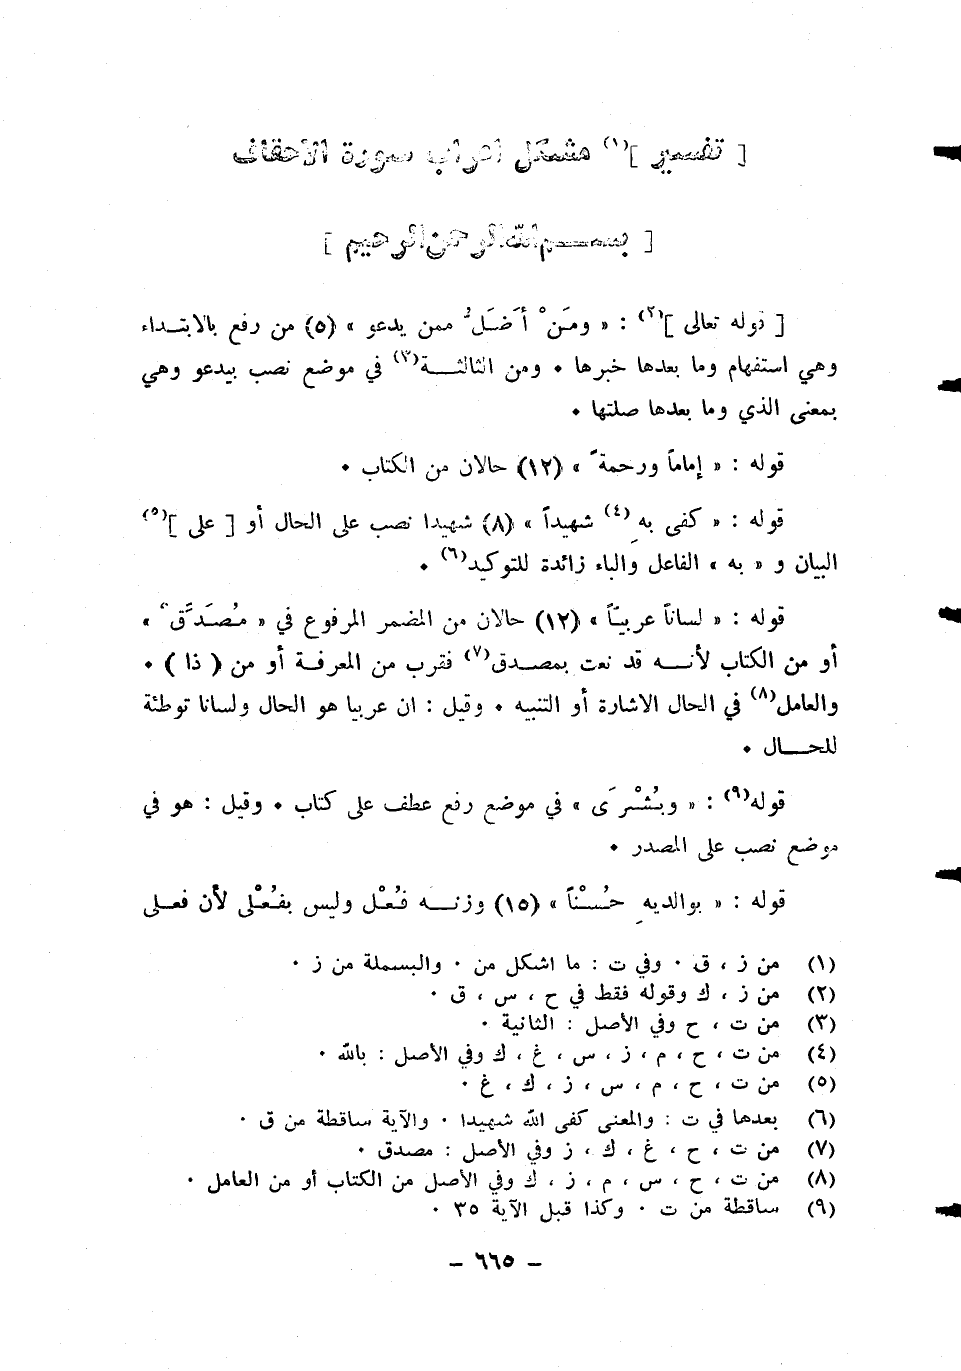 [ تفسير ](١) مشكل اعراب سورة الأحقاف
[ بسم الله الرحمن الرحيم ]
[ قوله تعالى ](٢) : « ومَنْ أَضَلُّ ممن يدعو » (٥) من رفع بالابتداء
وهي استفهام وما بعدها خبرها ٠ ومن الثالثة(٣) في موضع نصب بيدعو وهي
بمعنى الذي وما بعدها صلتها ٠
قوله : « إماماً ورحمةً » (١٢) حالان من الكتاب ٠
قوله : « كفى بهِ(٤) شهيداً » (٨) شهيدا نصب على الحال أو [ على ](٥)
البيان و « به » الفاعل والباء زائدة للتوكيد(٦) ٠
قوله : « لساناً عربيّاً » (١٢) حالان من المضمر المرفوع في « مُصَدِّقٌ »
أو من الكتاب لأنه قد نعت بمصدق(٧) فقرب من المعرفة أو من ( ذا ) ٠
والعامل(٨) في الحال الاشارة أو التنبيه ٠ وقيل : ان عربيا هو الحال ولسانا توطئة
للحال ٠
قوله(٩) : « وبُشْرَى » في موضع رفع عطف على كتاب ٠ وقيل : هو في
موضع نصب على المصدر ٠
قوله : « بوالديهِ حُسْنَاً » (١٥) وزنه فُعْل وليس بفُعْلى لأن فعلى
(١) من ز ، ق ٠ وفي ت : ما اشكل من ٠ والبسملة من ز ٠
(٢) من ز ، ك وقوله فقط في ح ، س ، ق ٠
(٣) من ت ، ح وفي الأصل : الثانية ٠
(٤) من ت ، ح ، م ، ز ، س ، غ ، ك وفي الأصل : بالله ٠
(٥) من ت ، ح ، م ، س ، ز ، ك ، غ ٠
(٦) بعدها في ت : والمعنى كفى الله شهيدا ٠ والآية ساقطة من ق ٠
(٧) من ت ، ح ، غ ، ك ، ز وفي الأصل : مصدق ٠
(٨) من ت ، ح ، س ، م ، ز ، ك وفي الأصل من الكتاب أو من العامل ٠
(٩) ساقطة من ت ٠ وكذا قبل الآية ٣٥ ٠
– ٦٦٥ –